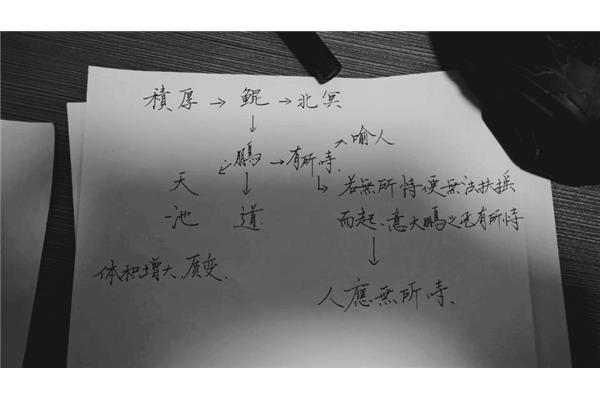 積厚 → 鲲 → 北冥
↓
喻人
鵬 → 有所待
天池 道
若無所待便無法扶摇
而起、意大鵬之 有所待
↓
体积增大、质变.
人應無所待.